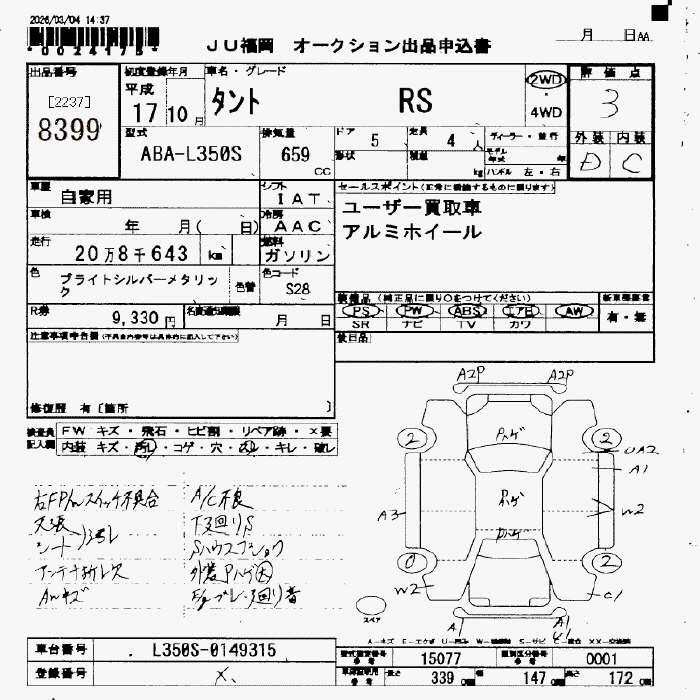 2026/03/04 14:37
*0024175*
JU福岡 オークション出品申込書
月 日AA
出品番号
[2237]
8399
初度登録年月
平成
17 10 月
車名・グレード
タント RS
2WD
・
4WD
評価点
3
外装 内装
D C
型式
ABA-L350S
排気量
659
CC
ドア 5
定員 4 人
形状
積載 kg
ディーラー・並行
モデル年式 年
ハンドル 左・右
車歴 自家用
シフト IAT
車検 年 月( 日)
冷房 AAC
走行 20万8千643 km
燃料 ガソリン
色 ブライトシルバーメタリック
色替
色コード S28
R券 9,330円
名義変更期限 月 日
セールスポイント(正常に機能するものに限ります)
ユーザー買取車
アルミホイール
装備品(純正品に限り○をつけてください)
PS PW ABS エアB AW
SR ナビ TV カワ
新車保証書
有・無
後日品
注意事項申告欄
修復歴 有〔箇所 〕
検査員記入欄
FW キズ・飛石・ヒビ割・リペア跡・×要
内装 キズ・汚レ・コゲ・穴・ヌレ・キレ・破レ
右FP/Wスイッチ不具合
天張
シート
アンテナ折レ欠
AWキズ
A/C不良
下廻りS
外装Pハゲ大
A2P A2P
2 2
Pハゲ
UA2
A1
Pハゲ
A3
W2
Pハゲ
0 2
W2
C1
A1 A1
スペア
車台番号 L350S-0149315
登録番号 ×
型式指定番号 15077
類別区分番号 0001
長さ 339 cm
幅 147 cm
高さ 172 cm